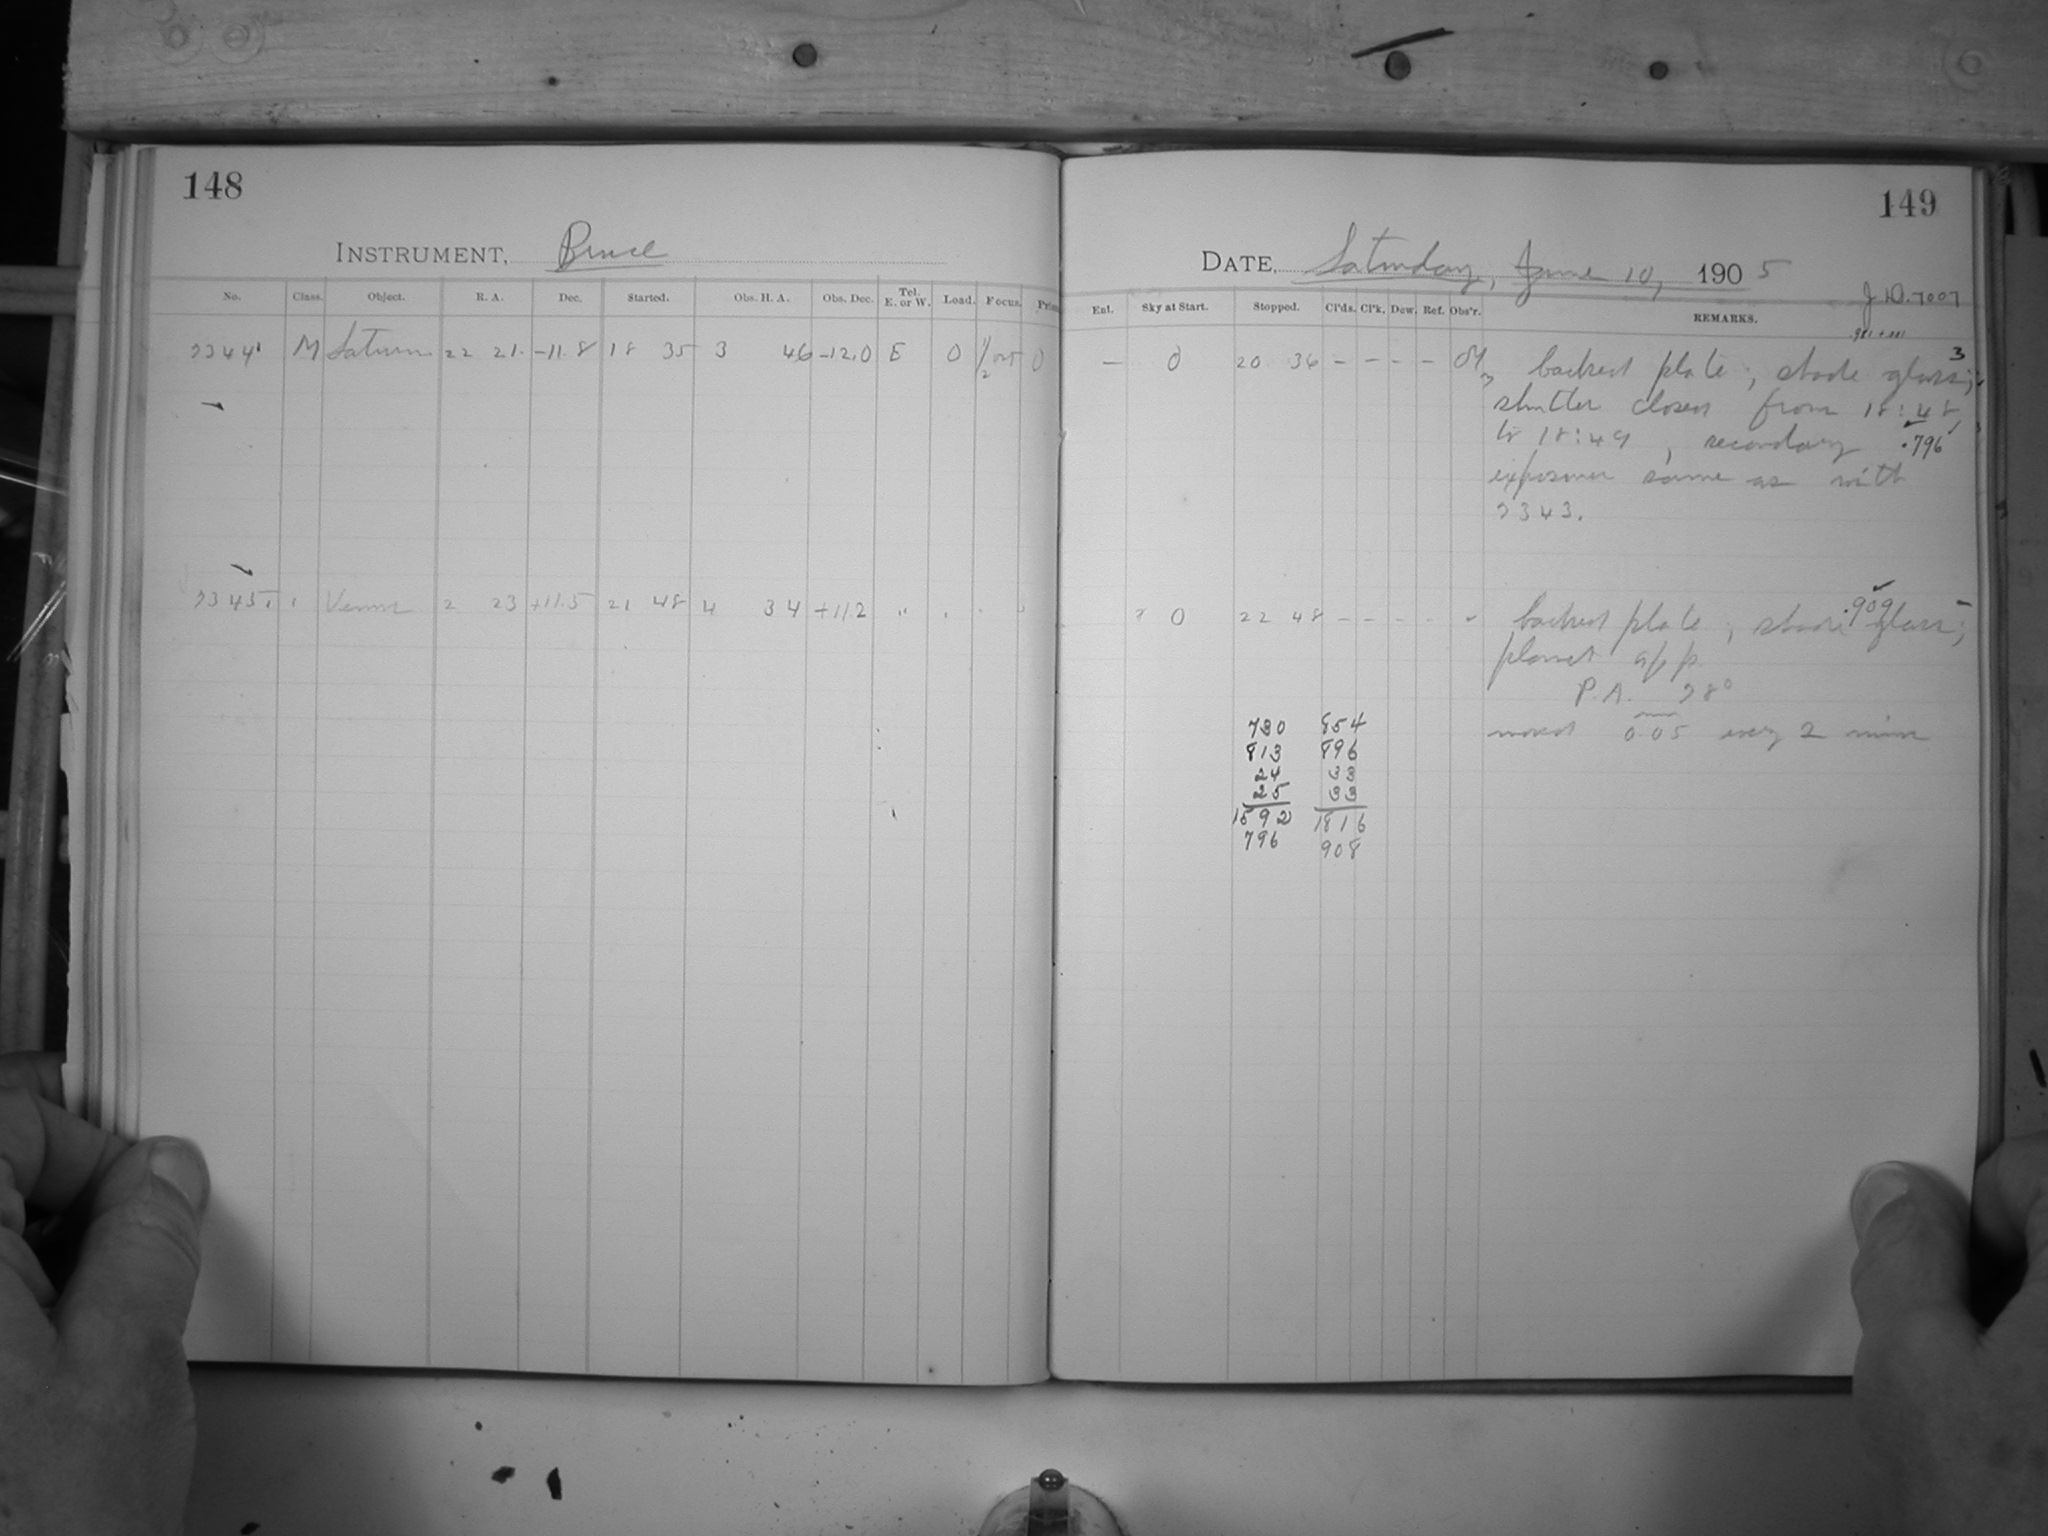 148
INSTRUMENT, Bruce
No. Class. Object. R. A. Dec. Started. Obs. H. A. Obs. Dec. Tel. E. or W. Load. Focus.
2344 M Saturn 22 21 -11.8 18 35 3 46 -12.0 E 0 0
2345 Venus 2 23 +11.5 21 48 4 34 +11.2 "
149
DATE, Saturday, June 10, 1905
J.D. 7007
Ent. Sky at Start. Stopped. Cl'ds. Cl'k. Dew. Ref. Obs'r. REMARKS.
— 0 20 36 - - - - backed plate, shade glass; 3
shutter closed from 18:48
to 18:49, secondary .796
exposure same as with
2343.
.909
0 22 48 - - - - backed plate, shade glass;
planet app.
P.A. 28°
moved 0.05 every 2 min
730 854
813 896
24 33
25 33
1592 1816
796 908